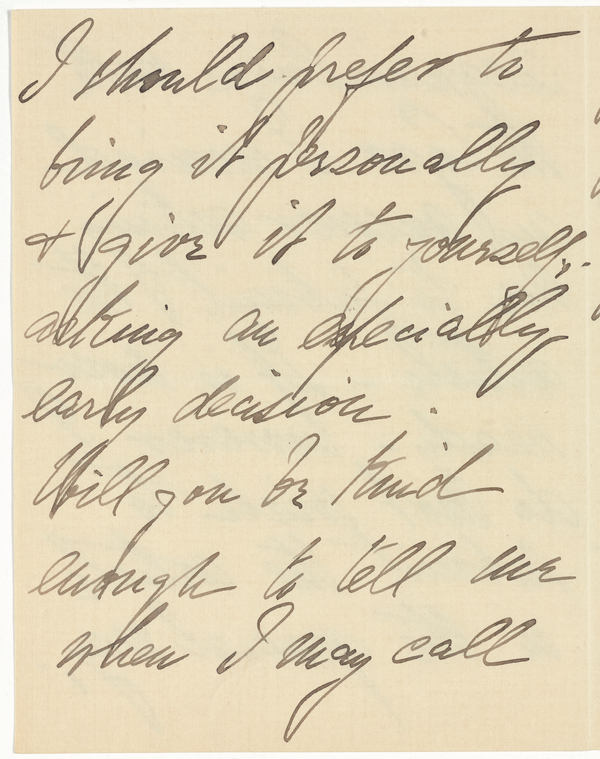 I should prefer to
bring it personally
& give it to yourself,
asking an especially
early decision.
Will you be kind
enough to tell me
when I may call